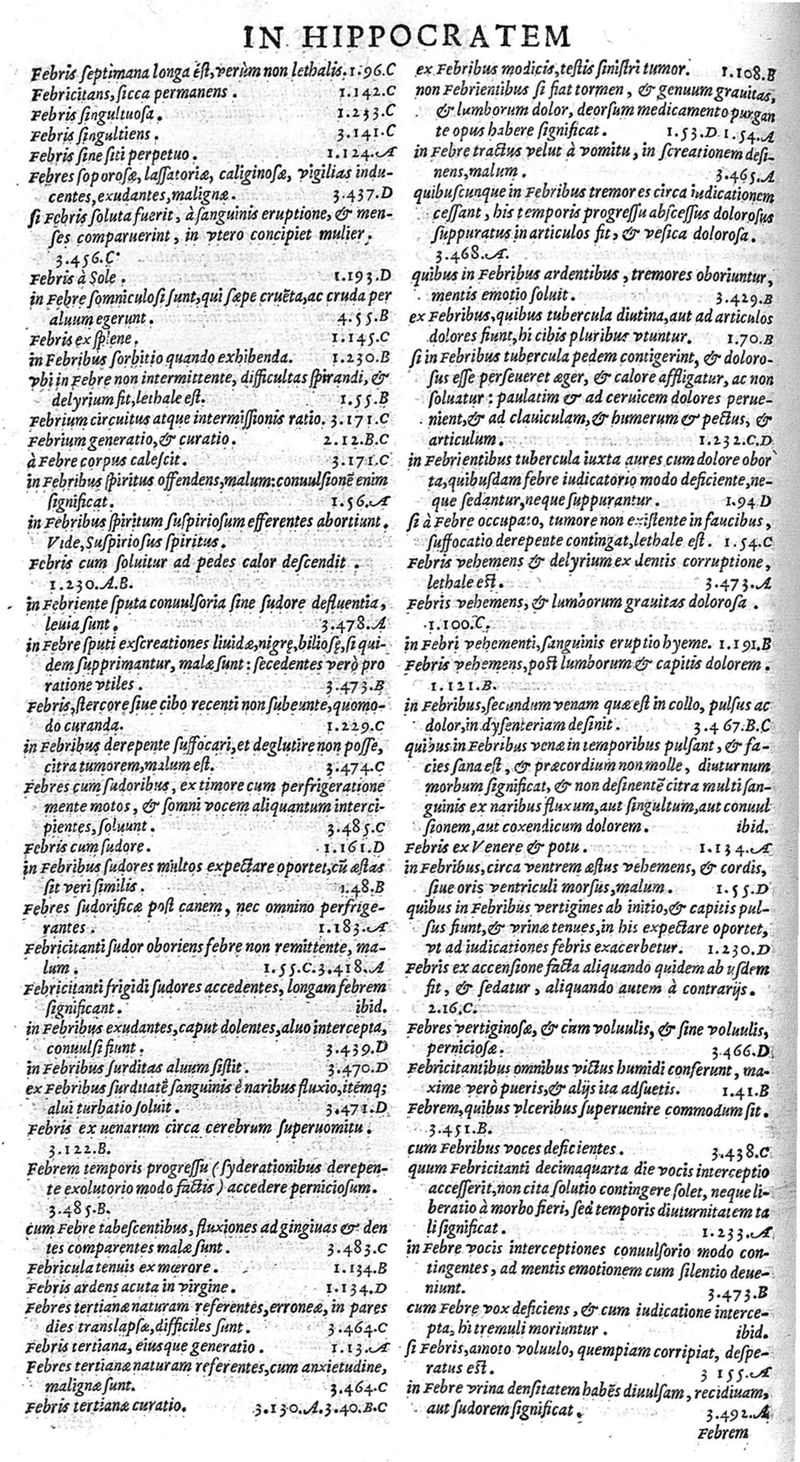 IN HIPPOCRATEM
Febris ſeptimana longa eſt, verùm non lethalis. 1.96.C
Febricitans, ſicca permanens. 1.142.C
Febris ſingultuoſa. 1.233.C
Febris ſingultiens. 3.141.C
Febris ſine ſiti perpetuo. 1.124.A
Febres ſoporoſæ, laſſatoriæ, caliginoſæ, vigilias indu-
centes, exudantes, malignæ. 3.437.D
ſi Febris ſoluta fuerit, à ſanguinis eruptione, & men-
ſes comparuerint, in vtero concipiet mulier.
3.456.C
Febris à Sole. 1.193.D
in Febre ſomniculoſi ſunt, qui ſæpe cruēta, ac cruda per
aluum egerunt. 4.55.B
Febris ex ſplene. 1.145.C
in Febribus ſorbitio quando exhibenda. 1.230.B
vbi in Febre non intermittente, difficultas ſpirandi, &
delyrium fit, lethale eſt. 1.55.B
Febrium circuitus atque intermiſſionis ratio. 3.171.C
Febrium generatio, & curatio. 2.12.B.C
à Febre corpus caleſcit. 3.171.C
in Febribus ſpiritus offendens, malum: conuulſionē enim
ſignificat. 1.56.A
in Febribus ſpiritum ſuſpirioſum efferentes abortiunt.
Vide, Suſpirioſus ſpiritus.
Febris cum ſoluitur ad pedes calor deſcendit.
1.230.A.B.
in Febriente ſputa conuulſoria ſine ſudore defluentia,
leuia ſunt. 3.478.A
in Febre ſputi exſcreationes liuidæ, nigrę, bilioſę, ſi qui-
dem ſupprimantur, malæ ſunt: ſecedentes verò pro
ratione vtiles. 3.473.B
Febris, ſtercore ſiue cibo recenti non ſubeunte, quomo-
do curanda. 1.229.C
in Febribus derepente ſuffocari, et deglutire non poſſe,
citra tumorem, malum eſt. 3.474.C
Febres cum ſudoribus, ex timore cum perfrigeratione
mente motos, & ſomni vocem aliquantum interci-
pientes, ſoluunt. 3.485.C
Febris cum ſudore. 1.161.D
in Febribus ſudores multos expectare oportet, cū æſtas
ſit veri ſimilis. 1.48.B
Febres ſudorificæ poſt canem, nec omnino perfrige-
rantes. 1.183.A
Febricitanti ſudor oboriens febre non remittente, ma-
lum. 1.55.C.3.418.A
Febricitanti frigidi ſudores accedentes, longam febrem
ſignificant. ibid.
in Febribus exudantes, caput dolentes, aluo intercepta,
conuulſi fiunt. 3.439.D
in Febribus ſurditas aluum ſiſtit. 3.470.D
ex Febribus ſurditatē ſanguinis è naribus fluxio, itémq;
alui turbatio ſoluit. 3.471.D
Febris ex uenarum circa cerebrum ſuperuomitu.
3.122.B.
Febrem temporis progreſſu (ſyderationibus derepen-
te exolutorio modo factis) accedere pernicioſum.
3.485.B.
cum Febre tabeſcentibus, fluxiones ad gingiuas & den
tes comparentes malæ ſunt. 3.483.C
Febricula tenuis ex mœrore. 1.134.B
Febris ardens acuta in virgine. 1.134.D
Febres tertianæ naturam referentes, erroneæ, in pares
dies translapſæ, difficiles ſunt. 3.464.C
Febris tertiana, eiusque generatio. 1.13.A
Febres tertianæ naturam referentes, cum anxietudine,
malignæ ſunt. 3.464.C
Febris tertianæ curatio. 3.130.A.3.40.B.C
ex Febribus modicis, teſtis ſiniſtri tumor. 1.108.B
non Febrientibus ſi fiat tormen, & genuum grauitas,
& lumborum dolor, deorſum medicamento purgan
te opus habere ſignificat. 1.53.D 1.54.A
in Febre tractus velut à vomitu, in ſcreationem deſi-
nens, malum. 3.465.A
quibuſcunque in Febribus tremores circa iudicationem
ceſſant, his temporis progreſſu abſceſſus doloroſus
ſuppuratus in articulos fit, & veſica doloroſa.
3.468.A.
quibus in Febribus ardentibus, tremores oboriuntur,
mentis emotio ſoluit. 3.429.B
ex Febribus, quibus tubercula diutina, aut ad articulos
dolores fiunt, hi cibis pluribus vtuntur. 1.70.B
ſi in Febribus tubercula pedem contigerint, & doloro-
ſus eſſe perſeueret æger, & calore affligatur, ac non
ſoluatur: paulatim & ad ceruicem dolores perue-
nient, & ad clauiculam, & humerum & pectus, &
articulum. 1.232.C.D
in Febrientibus tubercula iuxta aures cum dolore obor
ta, quibuſdam febre iudicatorio modo deficiente, ne-
que ſedantur, neque ſuppurantur. 1.94 D
ſi à Febre occupato, tumore non exiſtente in faucibus,
ſuffocatio derepente contingat, lethale eſt. 1.54.C
Febris vehemens & delyrium ex dentis corruptione,
lethale eſt. 3.473.A
Febris vehemens, & lumborum grauitas doloroſa.
1.100.C.
in Febri vehementi, ſanguinis eruptio hyeme. 1.191.B
Febris vehemens, poſt lumborum & capitis dolorem.
1.121.B.
in Febribus, ſecundum venam quæ eſt in collo, pulſus ac
dolor, in dyſenteriam deſinit. 3.467.B.C
quibus in Febribus venæ in temporibus pulſant, & fa-
cies ſana eſt, & præcordium non molle, diuturnum
morbum ſignificat, & non deſinentē citra multi ſan-
guinis ex naribus fluxum, aut ſingultum, aut conuul
ſionem, aut coxendicum dolorem. ibid.
Febris ex Venere & potu. 1.134.A
in Febribus, circa ventrem æſtus vehemens, & cordis,
ſiue oris ventriculi morſus, malum. 1.55.D
quibus in Febribus vertigines ab initio, & capitis pul-
ſus fiunt, & vrinæ tenues, in his expectare oportet,
vt ad iudicationes febris exacerbetur. 1.230.D
Febris ex accenſione facta aliquando quidem ab ijſdem
fit, & ſedatur, aliquando autem à contrarijs.
2.16.C.
Febres vertiginoſæ, & cum voluulis, & ſine voluulis,
pernicioſæ. 3.466.D
Febricitantibus omnibus victus humidi conferunt, ma-
xime verò pueris, & alijs ita adſuetis. 1.41.B
Febrem, quibus vlceribus ſuperuenire commodum ſit.
3.451.B.
cum Febribus voces deficientes. 3.438.C
quum Febricitanti decimaquarta die vocis interceptio
acceſſerit, non cita ſolutio contingere ſolet, neque li-
beratio à morbo fieri, ſed temporis diuturnitatem ta
li ſignificat. 1.233.A
in Febre vocis interceptiones conuulſorio modo con-
tingentes, ad mentis emotionem cum ſilentio deue-
niunt. 3.473.B
cum Febre vox deficiens, & cum iudicatione interce-
pta, hi tremuli moriuntur. ibid.
ſi Febris, amoto voluulo, quempiam corripiat, deſpe-
ratus eſt. 3 155.A
in Febre vrina denſitatem habēs diuulſam, recidiuam,
aut ſudorem ſignificat. 3.492.A
Febrem